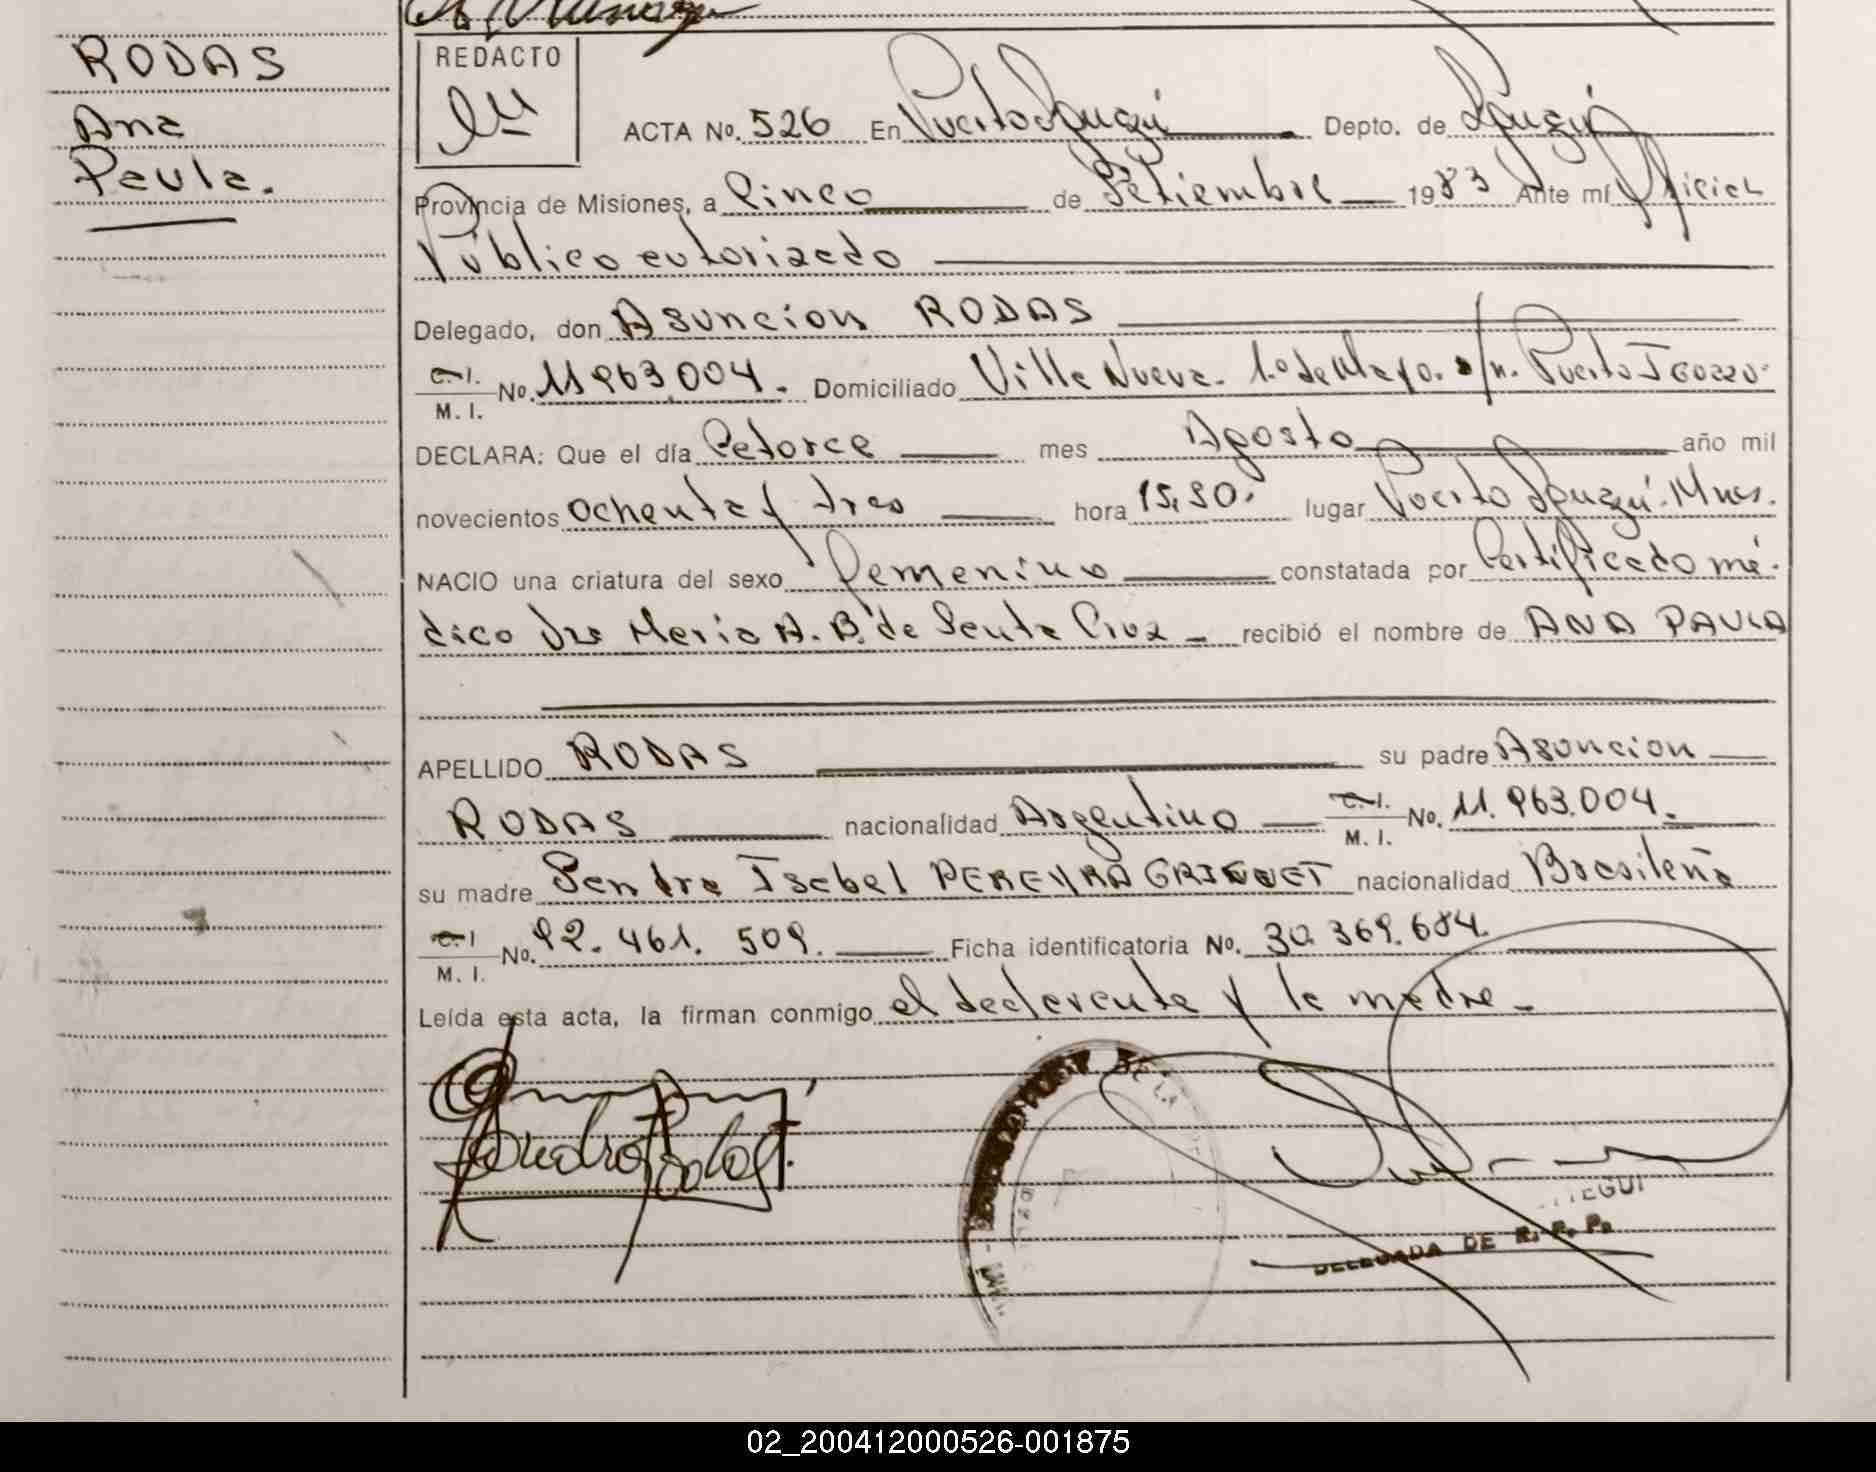 RODAS
Ana
Paula.
REDACTO
ACTA No. 526 En Puerto Iguazú Depto. de Iguazú
Provincia de Misiones, a Cinco de Setiembre 1983 Ante mí Oficial
Público autorizado
Delegado, don Asuncion RODAS
C. I. / M. I. No. 11963.004. Domiciliado Villa Nueva. 1º de Mayo. s/n. Puerto
DECLARA: Que el día Catorce mes Agosto año mil
novecientos ochenta y tres hora 15,30. lugar Puerto Iguazú. Mnes.
NACIO una criatura del sexo Femenino constatada por Certificado mé-
dico Dra Maria A. B. de Santa Cruz recibió el nombre de ANA PAULA
APELLIDO RODAS su padre Asuncion
RODAS nacionalidad Argentino C. I. / M. I. No. 11.963.004.
su madre Sandra Isabel PEREYRA nacionalidad Brasileña
C. I / M. I. No. 92.461.509. Ficha identificatoria No. 30.369.684.
Leída esta acta, la firman conmigo el declarante y la madre
DELEGADA DE R. P. P.
02_200412000526-001875